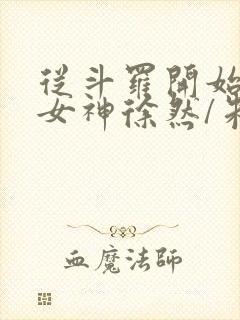 從斗羅開始
女神徐然/
血魔法師